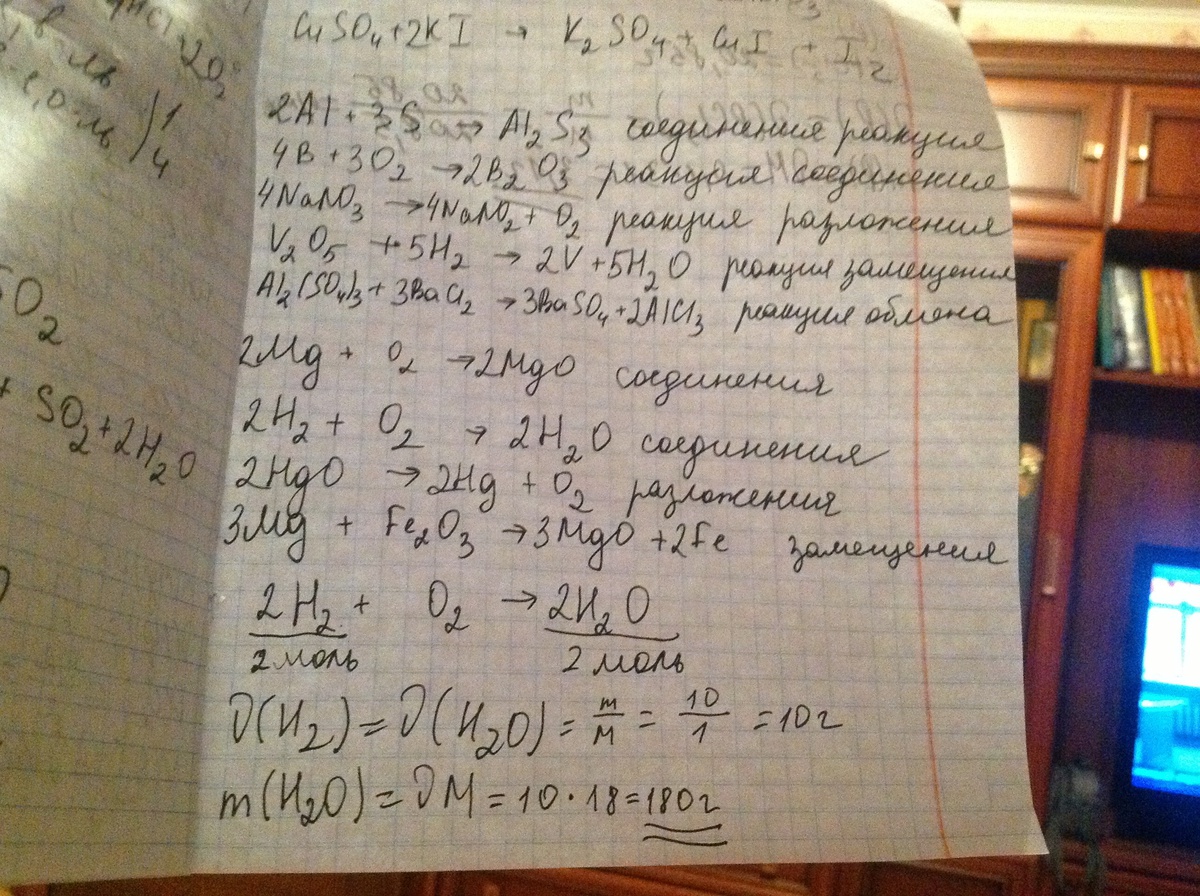 CuSO4+2KI → K2SO4 + CuI + I2
2Al + 3S → Al2S3 соединения реакция
4B + 3O2 → 2B2O3 реакция соединения
4NaNO3 → 4NaNO2 + O2 реакция разложения
V2O5 + 5H2 → 2V + 5H2O реакция замещения
Al2(SO4)3 + 3BaCl2 → 3BaSO4 + 2AlCl3 реакция обмена
2Mg + O2 → 2MgO соединения
2H2 + O2 → 2H2O соединения
2HgO → 2Hg + O2 разложения
3Mg + Fe2O3 → 3MgO + 2Fe замещения
2H2 + O2 → 2H2O
2 моль 2 моль
ν(H2) = ν(H2O) = m/M = 10/1 = 10г
m(H2O) = νM = 10 · 18 = 180г
2O2
O2
+ SO2 + 2H2O